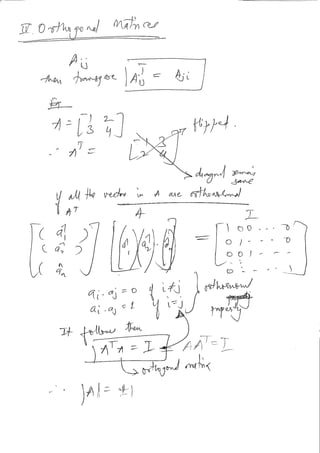 IV. Orthogonal Matrices
Aij
then transpose Aij^T = Aji
Eg
A = [1 2
3 4]
flipped.
∴ A^T = [1 3
2 4]
diagonal remains
same
if all the vectors in A are orthonormal
A^T A I
[(a1^T) (a2^T) (an^T)] [(a1)(a2)(an)] = [1 0 0 ... 0
0 1 ... 0
0 0 1 ...
0 ... 1]
ai . aj = 0 if i≠j
ai . aj = 1 if i=j
orthonormal
property
It follows then
A^T A = I = AA^T = I
orthogonal matrix
∴ |A| = ±1